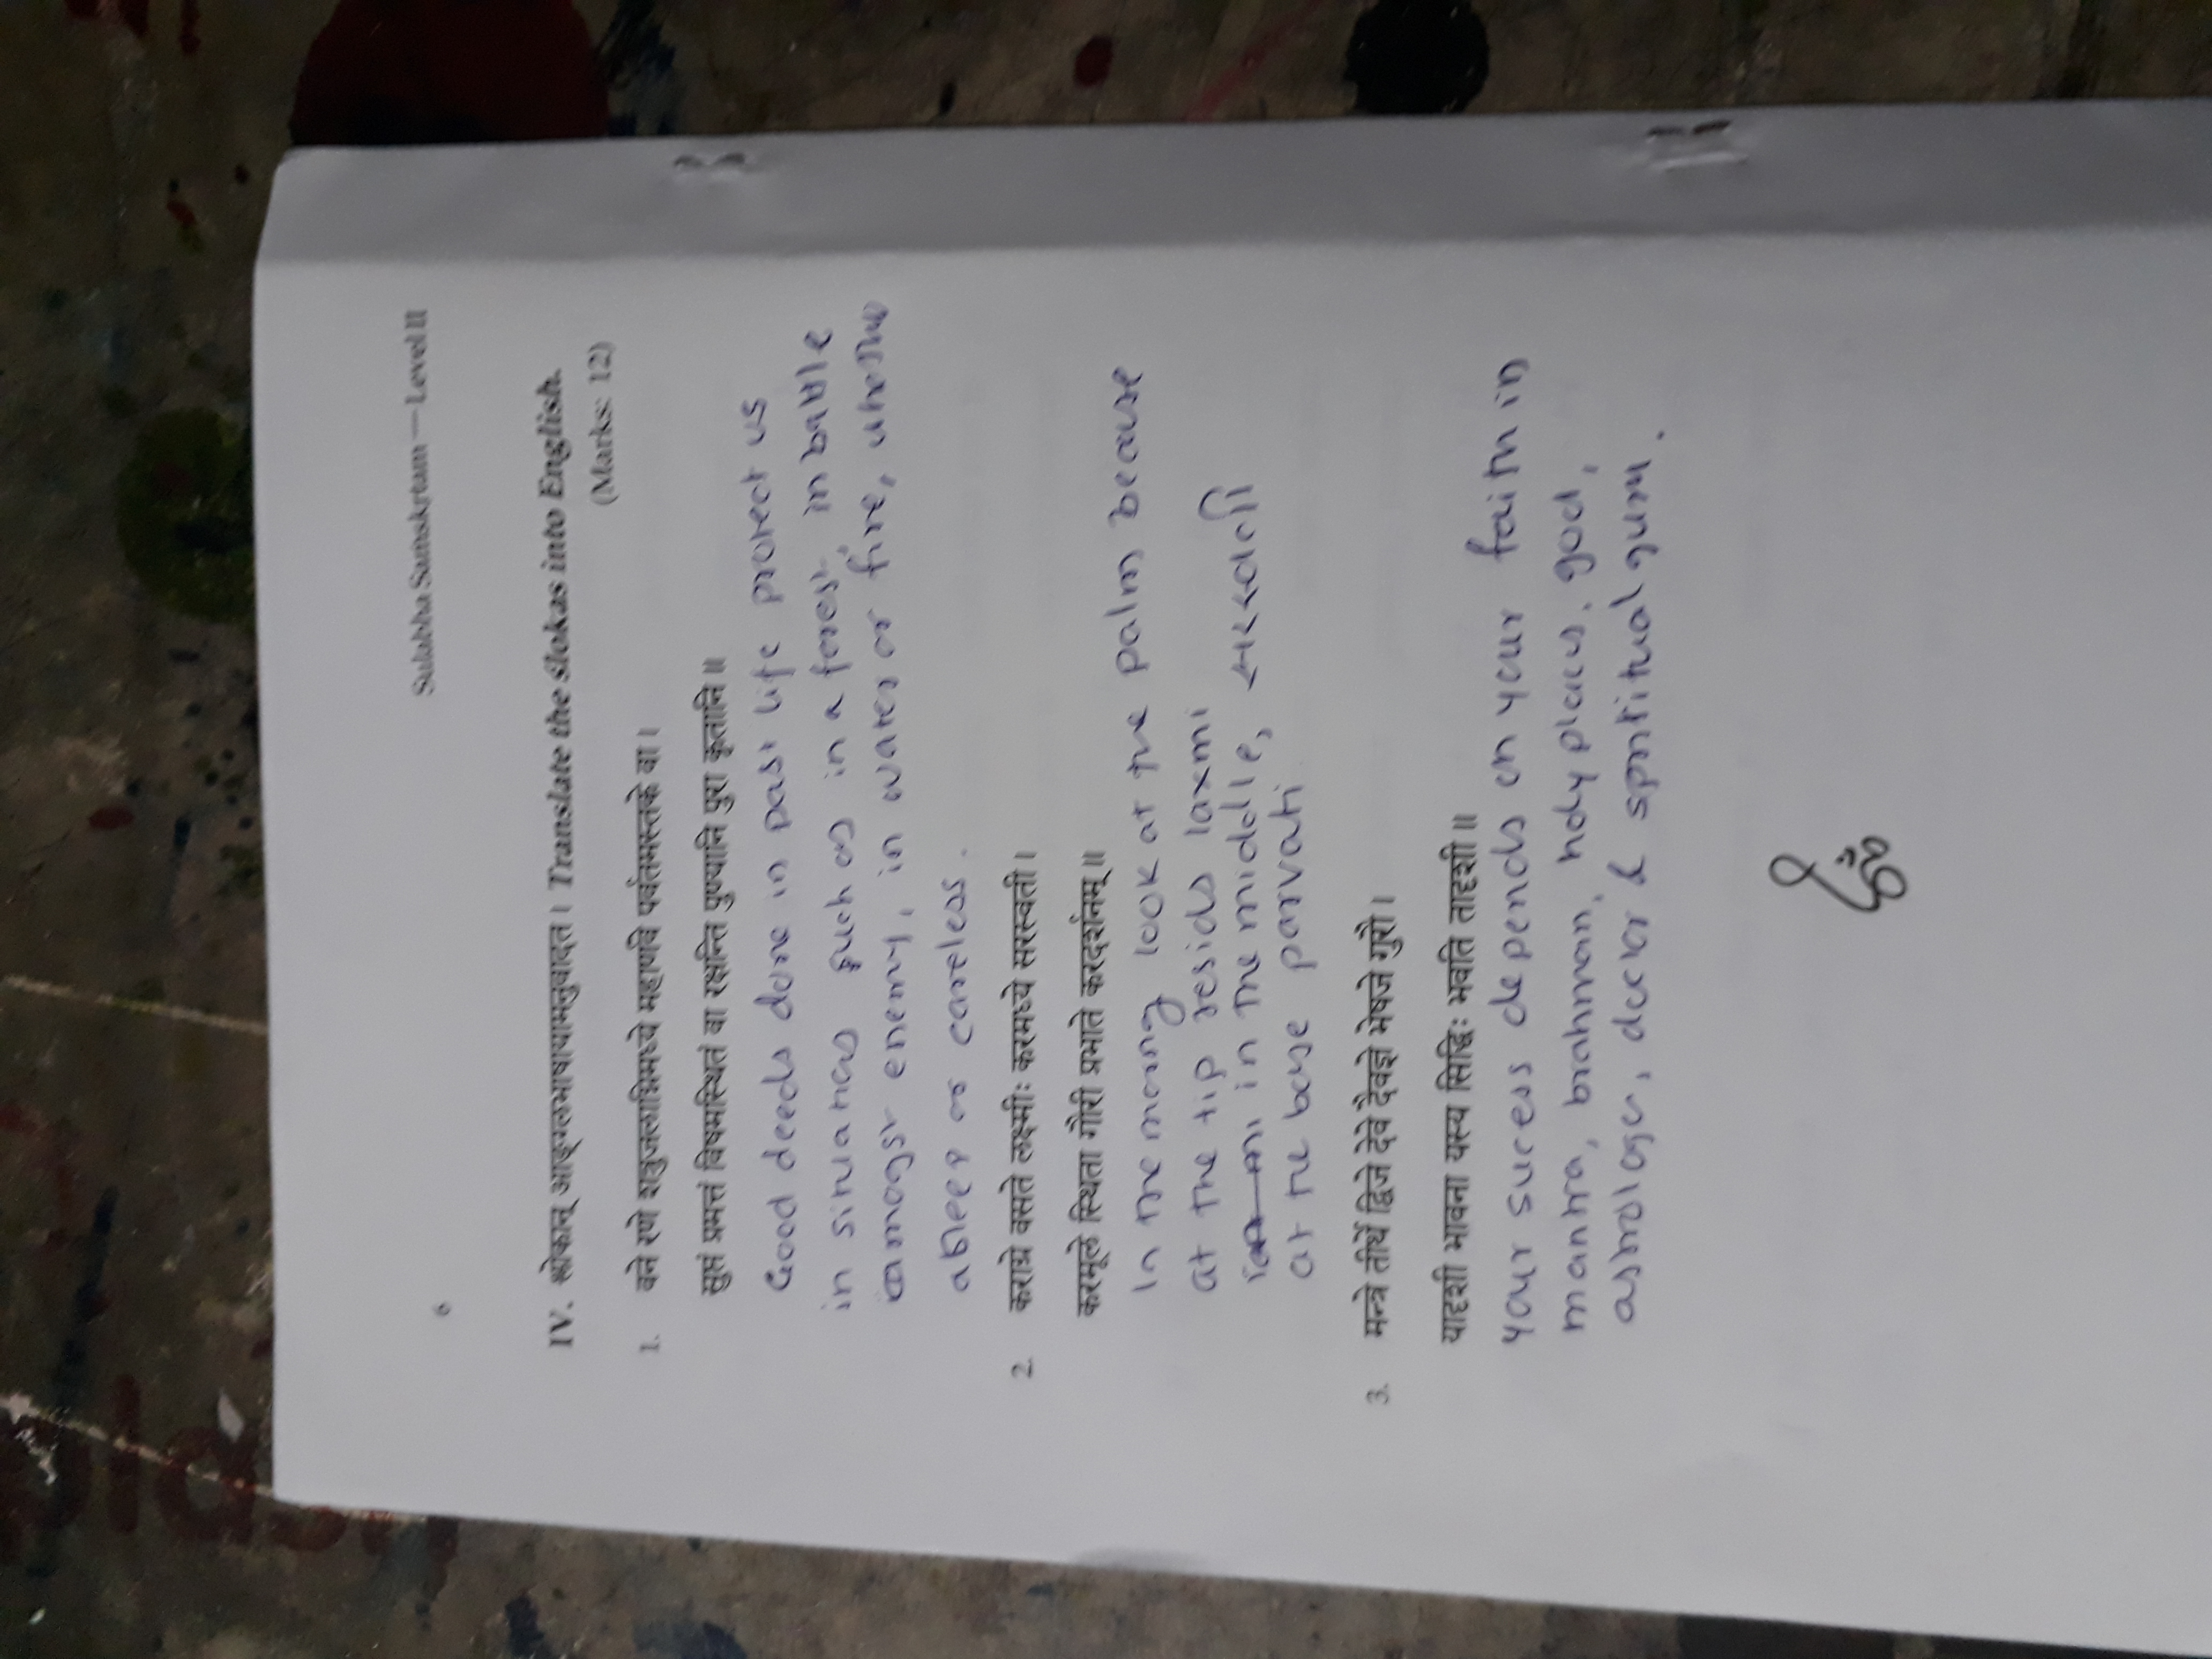 6
Sulabha Saṁskṛtam — Level II
IV. श्लोकान् आङ्ग्लभाषायामनुवादत । Translate the ślokas into English.
(Marks: 12)
1. वने रणे शत्रुजलाग्निमध्ये महार्णवे पर्वतमस्तके वा ।
सुप्तं प्रमत्तं विषमस्थितं वा रक्षन्ति पुण्यानि पुरा कृतानि ॥
Good deeds done in past life protect us
in situations such as in a forest, in battle
amogst enemy, in water or fire, whether
asleep or careless.
2. कराग्रे वसते लक्ष्मीः करमध्ये सरस्वती ।
करमूले स्थिता गौरी प्रभाते करदर्शनम् ॥
In the morng look at the palm because
at the tip resids laxmi
in the middle, सरस्वती
at the base parvati
3. मन्त्रे तीर्थे द्विजे देवे दैवज्ञे भेषजे गुरौ ।
यादृशी भावना यस्य सिद्धिः भवति तादृशी ॥
your sucess depends on your faith in
mantra, brahman, holy places, god,
astrologer, doctor & sprititual guru.
ॐ